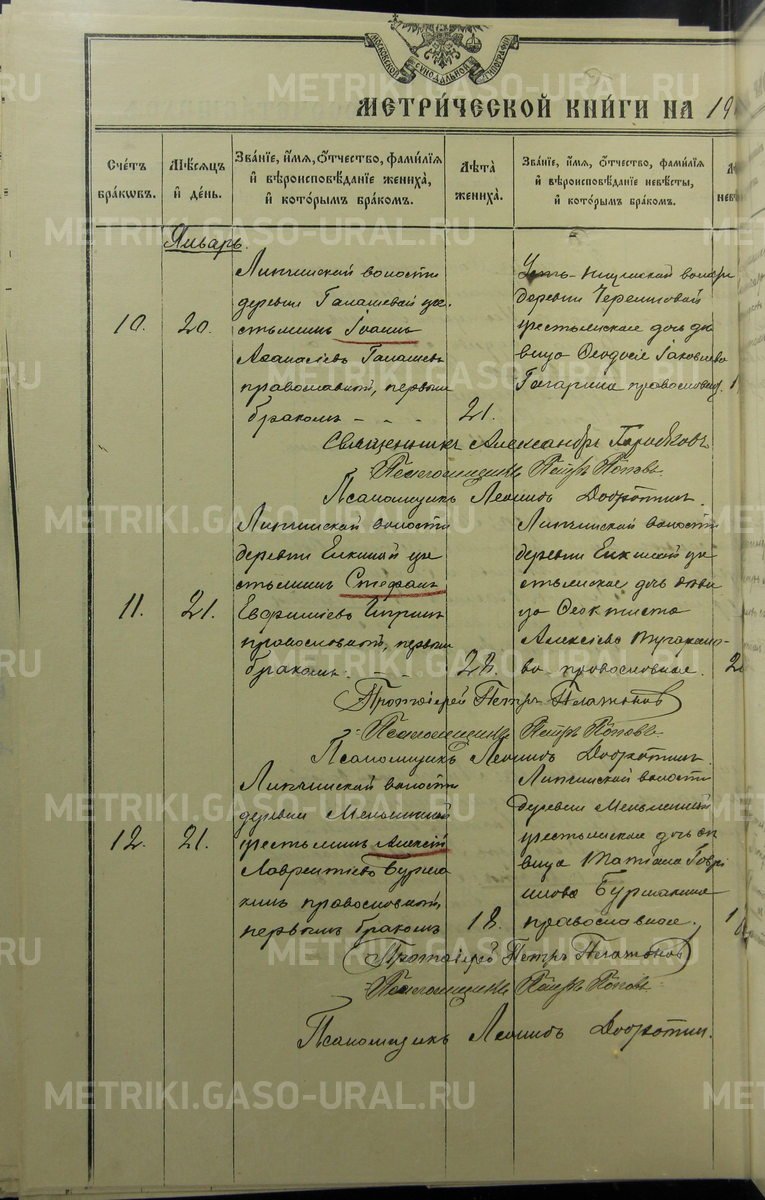 МОСКОВСКОЙ СУНОДАЛЬНОЙ ТИПОГРАФІИ
МЕТРИ́ЧЕСКОЙ КНИ́ГИ НА 19
Сче́тъ бра́кωвъ.
Мѣ́сяцъ и҆ де́нь.
Зва́нїе, и҆́мя, ѻ҆́тчество, фами́лїя и҆ вѣроисповѣ́данїе жениха̀, и҆ кото́рымъ бра́комъ.
Лѣ́та жениха̀.
Зва́нїе, и҆́мя, ѻ҆́тчество, фами́лїя и҆ вѣроисповѣ́данїе невѣ́сты, и҆ кото́рымъ бра́комъ.
Январь.
10.
20.
Липчинской волости
деревни Галашевой кре-
стьянинъ Іоаннъ
Аѳанасіевъ Галашевъ
православный, первымъ
бракомъ - - -
21.
Усть-Ницинской волости
деревни Черемновой
крестьянская дочь дѣ
вица Ѳеодосія Іаковлева
Гагарина православная.
Священникъ Александръ
Псаломщикъ Петръ Поповъ
Псаломщикъ Леонидъ Добротинъ.
11.
21.
Липчинской волости
деревни Елкиной кре
стьянинъ Стефанъ
Евфиміевъ
православный, первымъ
бракомъ. - - -
28.
Липчинской волости
деревни Елкиной кре
стьянская дочь дѣви
ца Ѳеоктиста
Алексіева
ва православная.
Протоіерей Петръ Платоновъ
Псаломщикъ Петръ Поповъ
Псаломщикъ Леонидъ Добротинъ.
12.
21.
Липчинской волости
деревни Мельничной
крестьянинъ Алексій
Лаврентіевъ Бурма
кинъ православный,
первымъ бракомъ
18.
Липчинской волости
деревни Мельничной
крестьянская дочь дѣ
вица Татіана Гаврі
илова Бурмакина
православная.
Протоіерей Петръ Платоновъ
Псаломщикъ Петръ Поповъ
Псаломщикъ Леонидъ Добротинъ.
METRIKI.GASO-URAL.RU